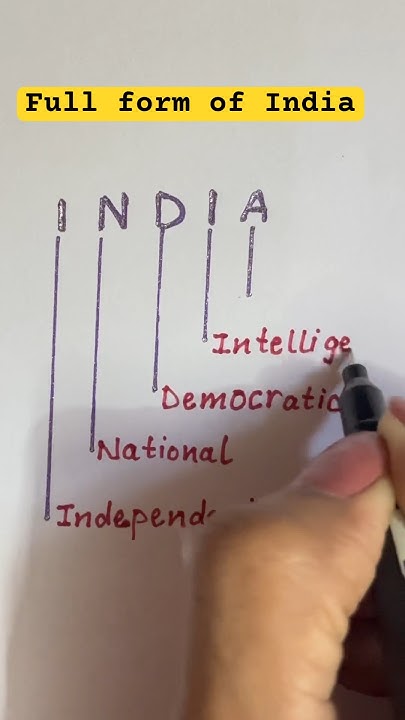 Full form of India
I N D I A
Intellige
Democratic
National
Independ